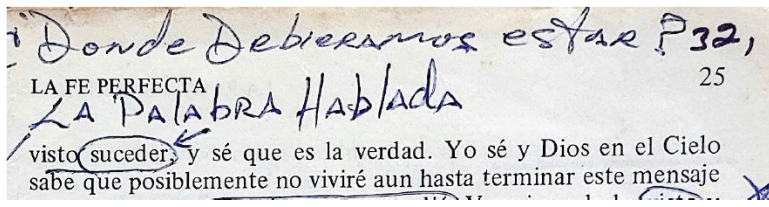 ¿Donde Debieramos estar? 32,
LA FE PERFECTA 25
LA Palabra Hablada
visto suceder, y sé que es la verdad. Yo sé y Dios en el Cielo
sabe que posiblemente no viviré aun hasta terminar este mensaje